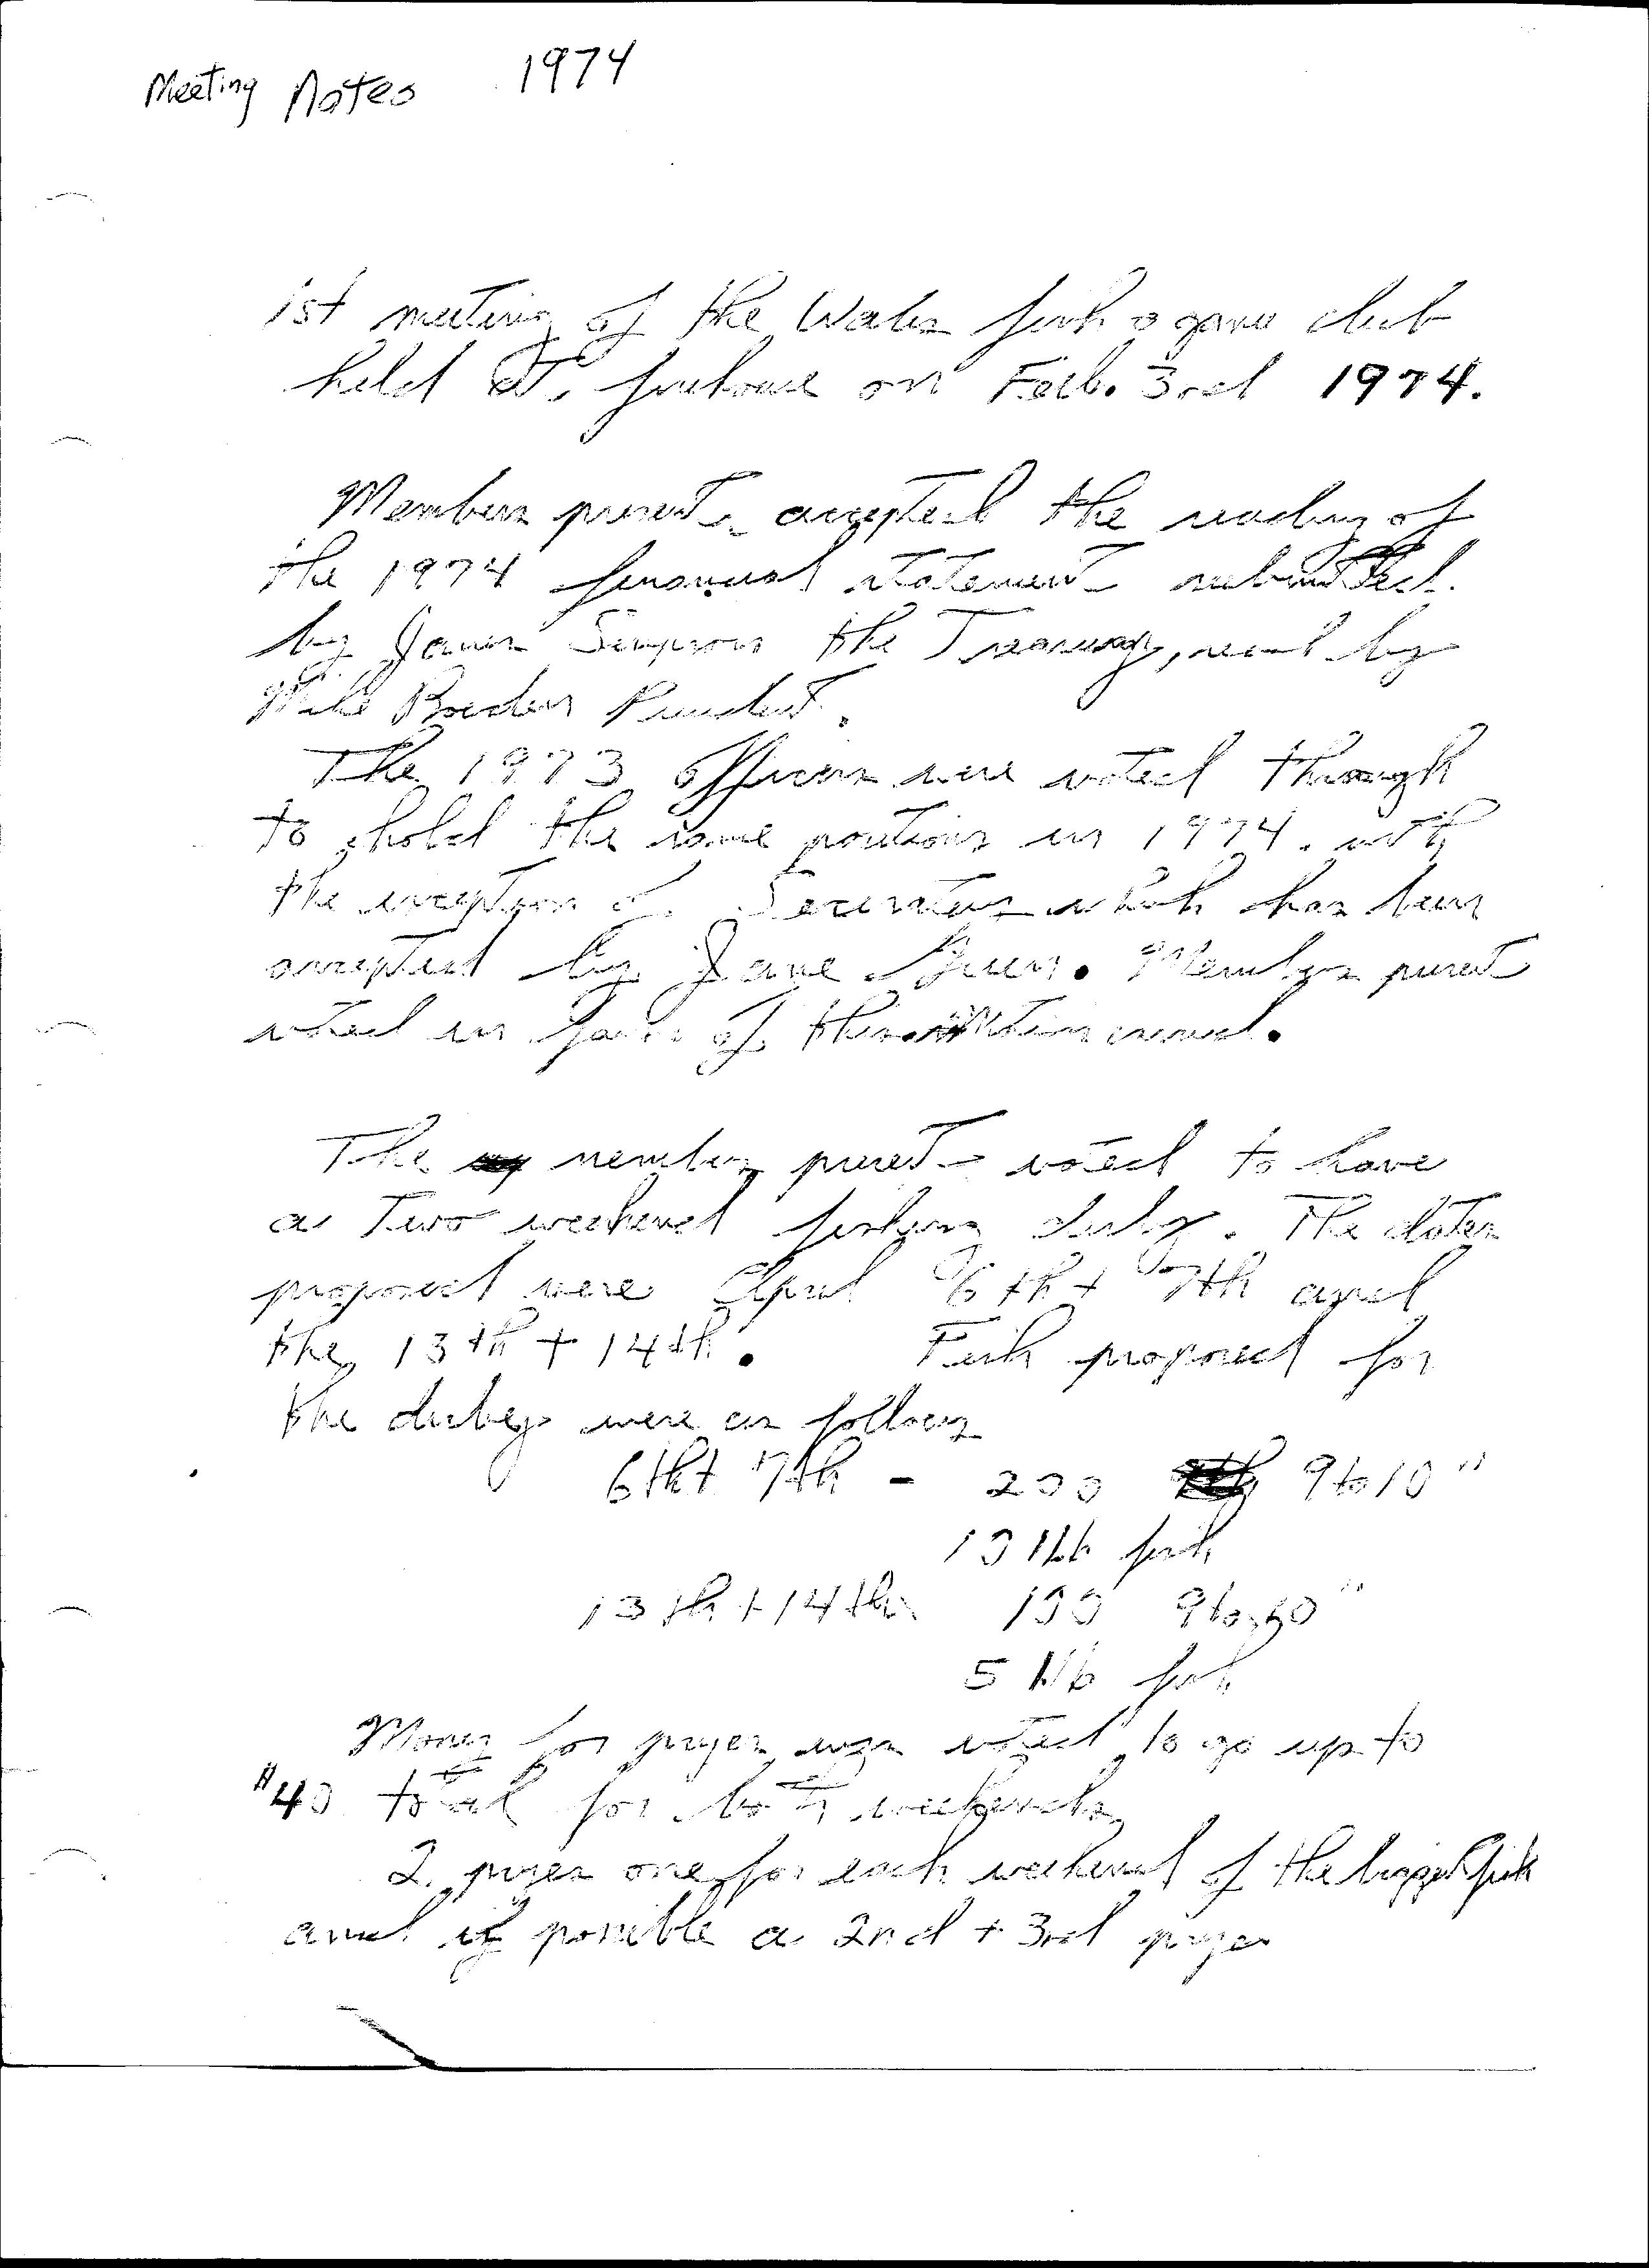 Meeting Notes 1974
1st meeting of the Wales fish & game club
held at firehouse on Feb. 3rd 1974.
Members present accepted the reading of
the 1974 financial statement submitted
by James Simpson the Treasury, read by
Mike President.
The 1973 officers were voted through
to hold the same positions in 1974. with
the exception of Secretary which has been
accepted by Jane. Members present
voted in favor of this.
The members present voted to have
a Two weekend fishing derby. The dates
proposed were April 6th + 7th and
the 13th + 14th. Fish proposed for
the derbys were as follows
6th + 7th - 200 9 to 10"
10 1 lb fish
13th + 14th 100 9 to 10"
5 1 lb fish
Money for prizes was voted to go up to
$40 total for both weekends
2 prizes one for each weekend of the biggest fish
and if possible a 2nd + 3rd prizes